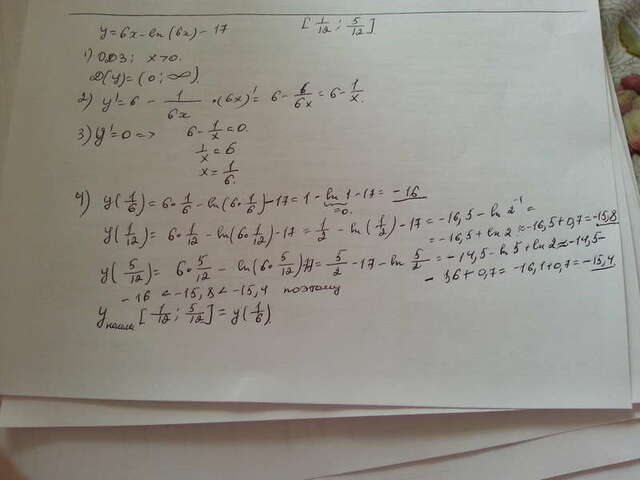 y=6x-ln(6x)-17 [1/12; 5/12]
1) ОДЗ; x>0.
D(y)=(0;∞)
2) y'=6 - 1/6x •(6x)'= 6 - 6/6x = 6 - 1/x.
3) y'=0 => 6 - 1/x = 0.
1/x = 6
x = 1/6.
4) y(1/6)= 6•1/6 - ln(6•1/6)-17 = 1 - ln 1 - 17 = -16
=0.
y(1/12)= 6•1/12 - ln(6•1/12)-17 = 1/2 - ln(1/2) - 17 = -16,5 - ln 2⁻¹ =
= -16,5 + ln 2 ≈ -16,5+0,7 = -15,8
y(5/12)= 6•5/12 - ln(6•5/12)-17= 5/2 - 17 - ln 5/2 = -14,5 - ln 5 + ln 2 ≈ -14,5-
- 1,6 + 0,7 = -16,1+0,7 = -15,4.
-16 < -15,8 < -15,4 поэтому
y наим [1/12; 5/12] = y(1/6).